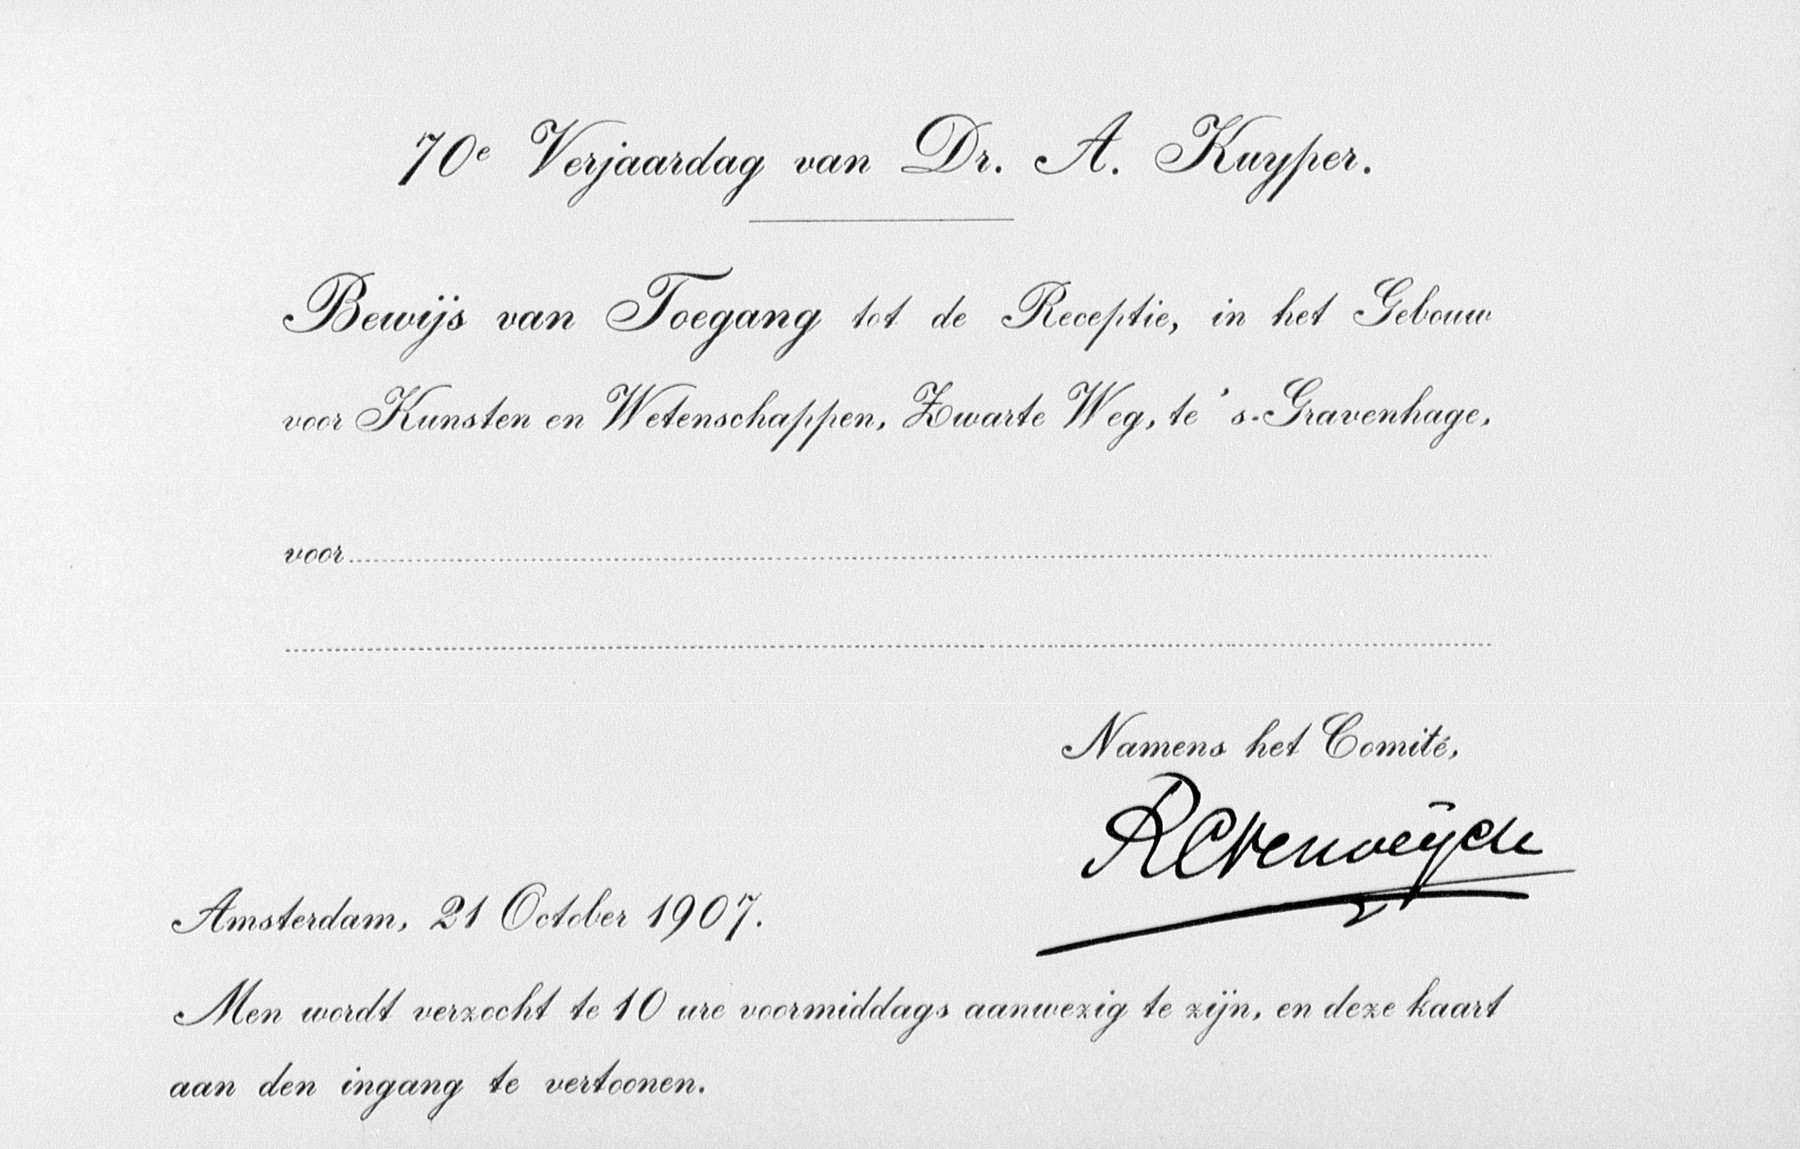 70e Verjaardag van Dr. A. Kuyper.
Bewijs van Toegang tot de Receptie, in het Gebouw
voor Kunsten en Wetenschappen, Zwarte Weg, te 's-Gravenhage,
voor
Namens het Comité,
Amsterdam, 21 October 1907.
Men wordt verzocht te 10 ure voormiddags aanwezig te zijn, en deze kaart
aan den ingang te vertoonen.